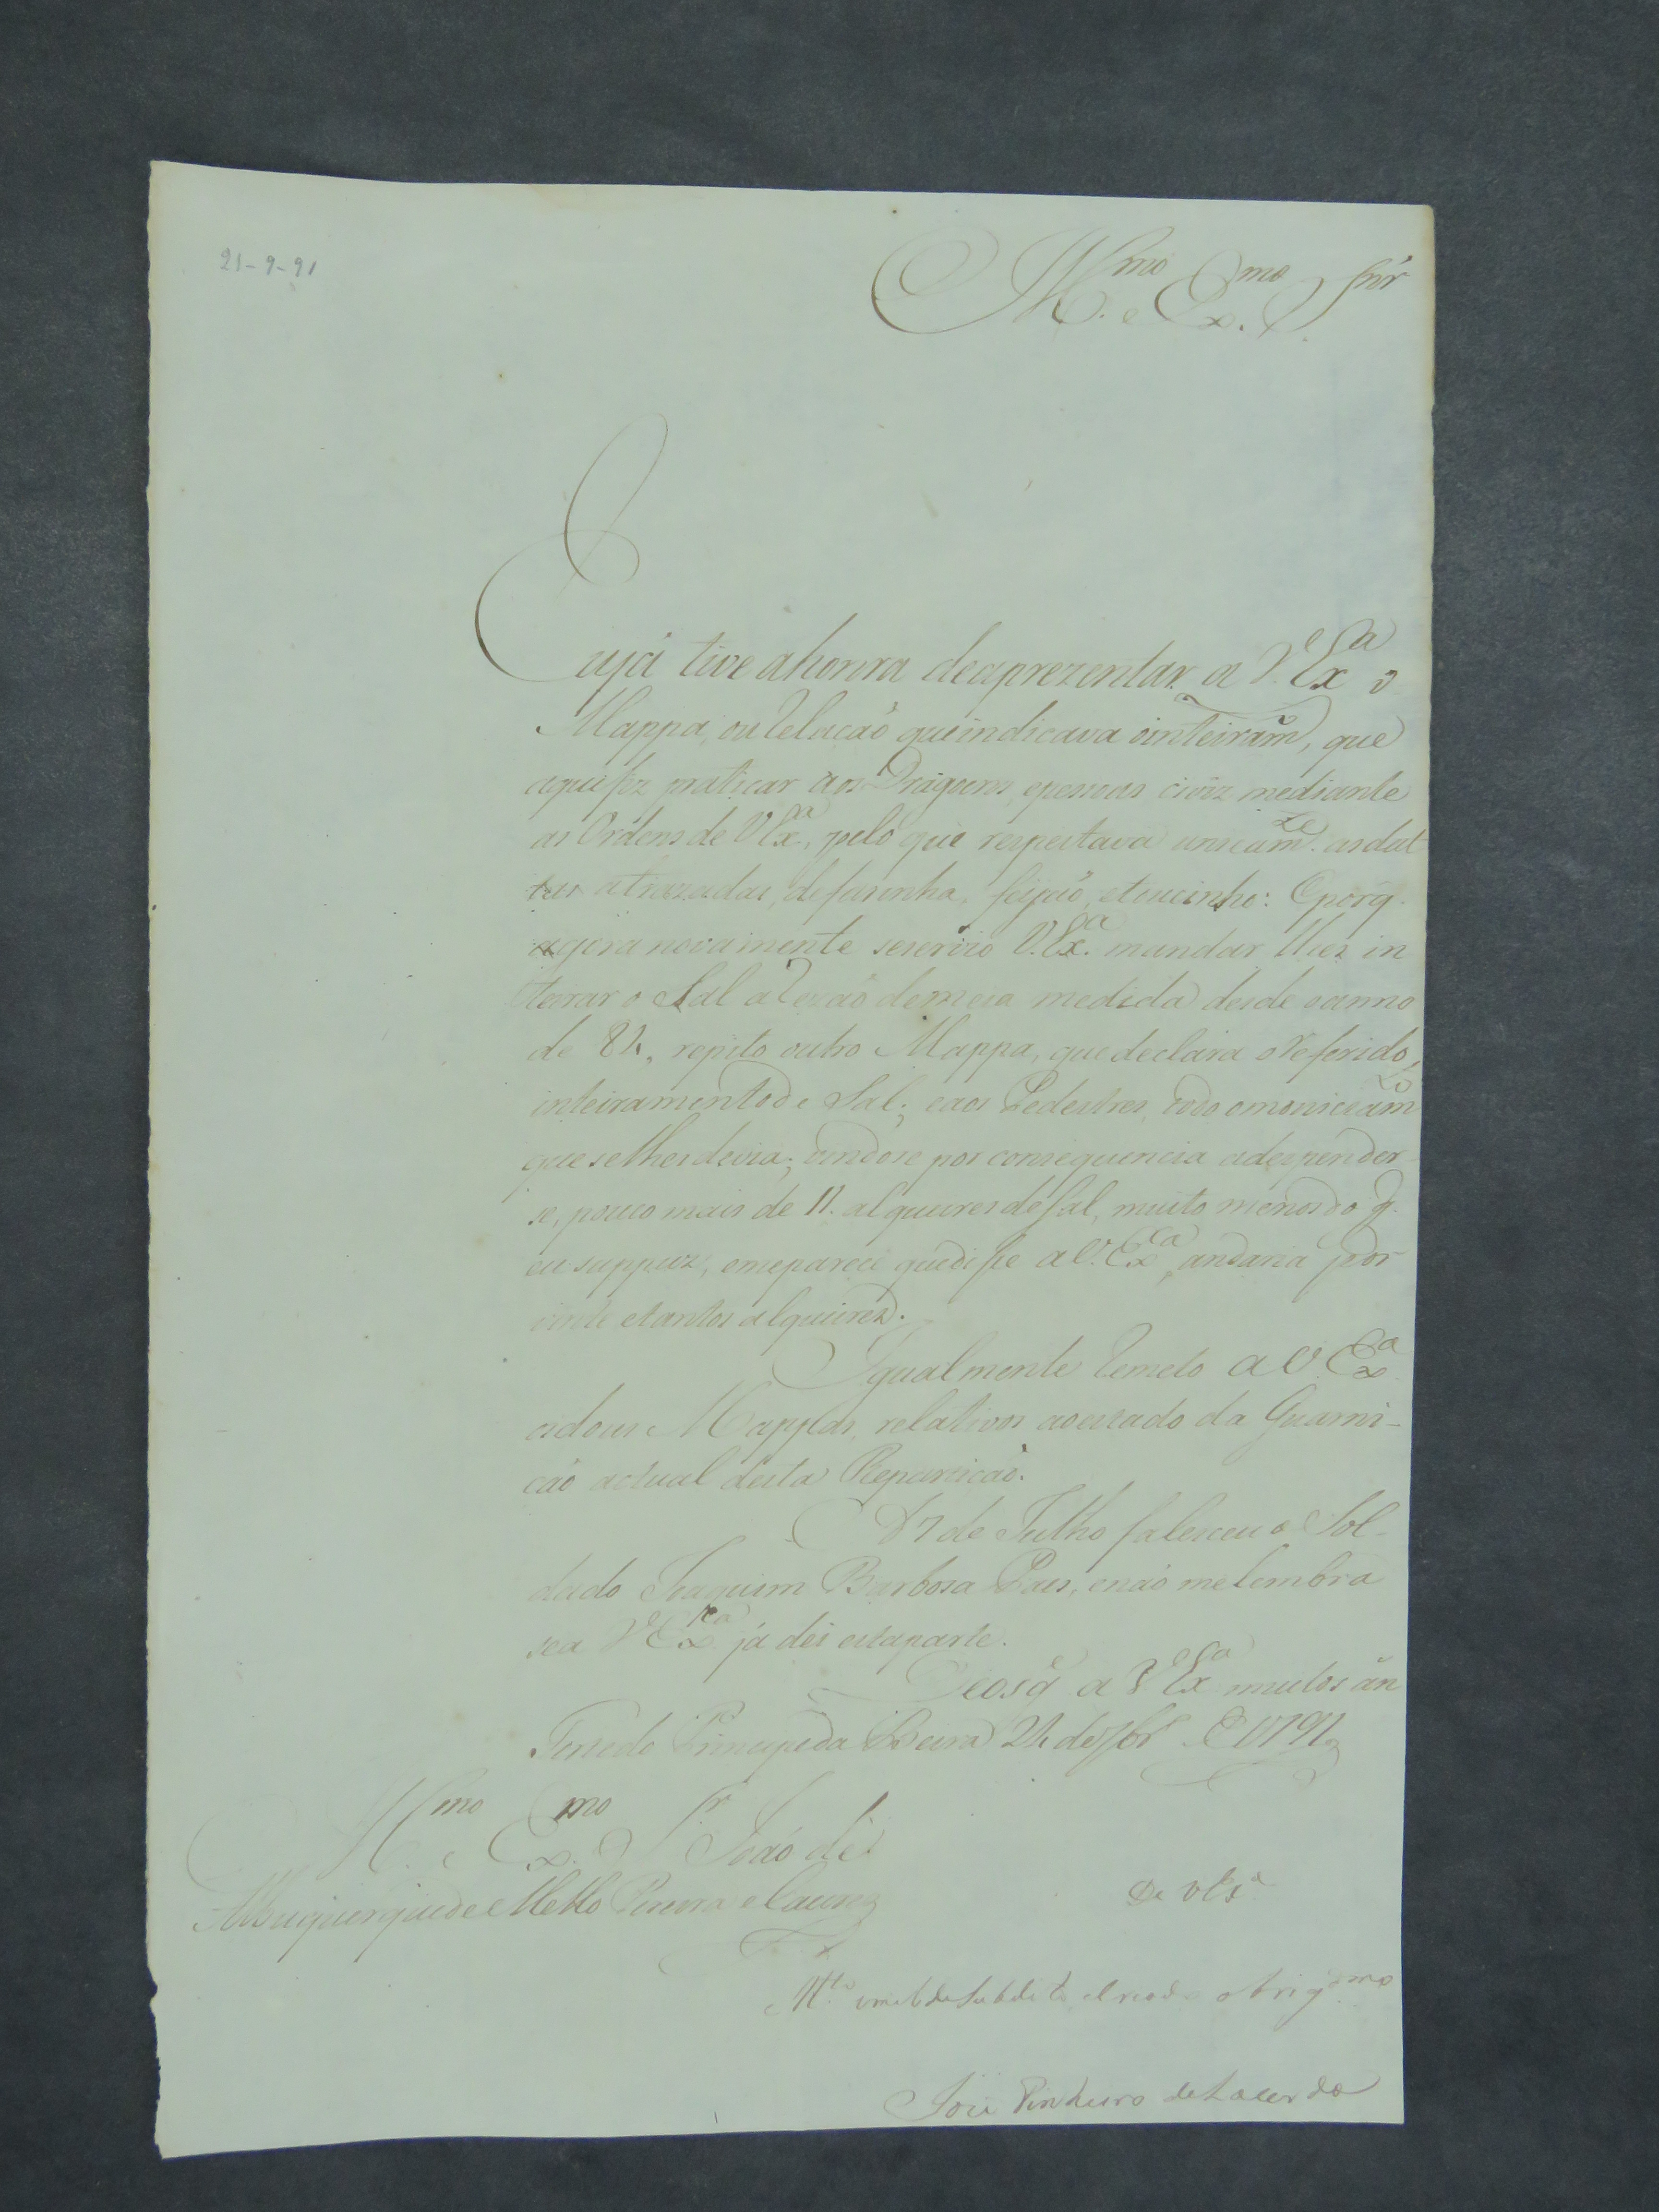 21-9-91
Ill.mo e Ex.mo Snr
Eu já tive ahonra deaprezentar a V. Ex.ª o
Mappa, ou Relacaõ queindicava ointeiram.to, que
aqui fez praticar aos Dragoens, epessoas civiz mediante
as Ordens de V Ex.ª, pelo que respeitava unicam.te as dat
tas atrazadas, defarinha, feijaõ, etoucinho: Eporq.
agora novamente seservio V. Ex.ª mandar lhes in
teirar o Sal aRezaõ demeia medida desde oanno
de 84, repito outro Mappa, que declara oReferido,
inteiramento de Sal; eaos Pedestres, todo omoniciam.to
que selhes devia; vindose por consequencia adespender
se, pouco mais de 11. alqueires de Sal, muito menos do q.
eu suppuz, emeparece quedisse a V. Ex.cª, andaria por
vinte etantos alqueires.
Igualmente Remeto a V. Ex.ª
osdous Mappas, relativos aoestado da Guarni-
caõ actual desta Reparticaõ.
A 7 de Julho faleceu o Sol-
dado Joaquim Barbosa Paes, enaõ melembra
sea V Ex.cª já dei estaparte.
Deos g.e a V Ex.ª muitos an
Forte do Principe da Beira 21 de 7br.º de 1791
Ill.mo e Ex.mo S.r Joaõ de
Albuquerque de Mello Pereira e Caceres
De V Ex.ª
M.to umilde Subdito, eCriado obrig.mo
Joze Pinheiro de Lacerda